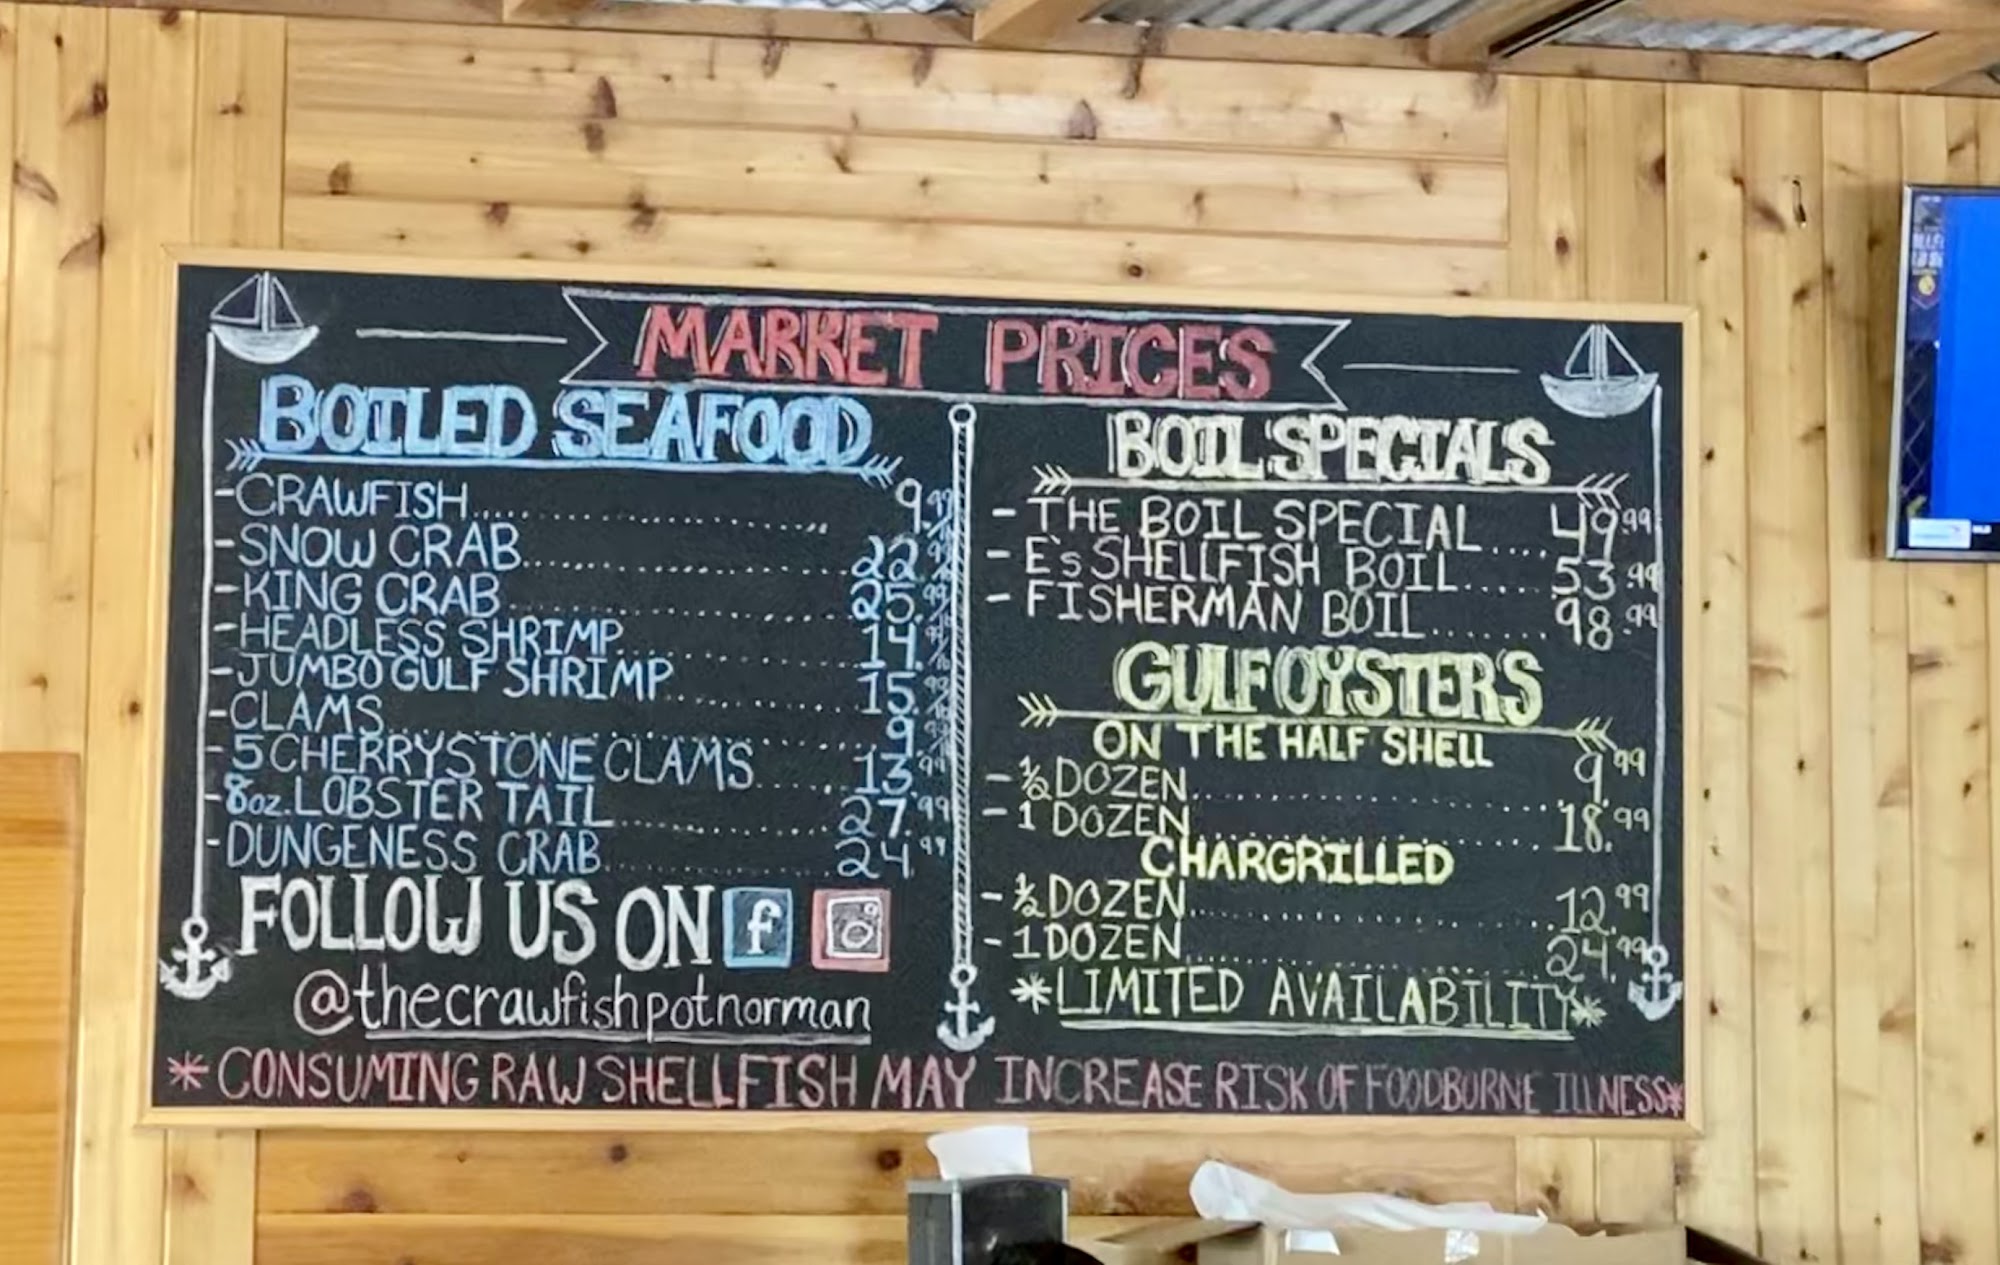 MARKET PRICES
BOILED SEAFOOD
-CRAWFISH 9.99/lb
-SNOW CRAB 22.99/lb
-KING CRAB 25.99/lb
-HEADLESS SHRIMP 14.99/lb
-JUMBO GULF SHRIMP 15.99/lb
-CLAMS 9.99/lb
-5 CHERRYSTONE CLAMS 13.99
-8oz. LOBSTER TAIL 27.99
-DUNGENESS CRAB 24.99
FOLLOW US ON f
@thecrawfishpotnorman
BOIL SPECIALS
- THE BOIL SPECIAL 49.99
- E's SHELLFISH BOIL 53.99
- FISHERMAN BOIL 98.99
GULF OYSTERS
ON THE HALF SHELL
- ½ DOZEN 9.99
- 1 DOZEN 18.99
CHARGRILLED
- ½ DOZEN 12.99
- 1 DOZEN 24.99
*LIMITED AVAILABILITY*
*CONSUMING RAW SHELLFISH MAY INCREASE RISK OF FOODBORNE ILLNESS*